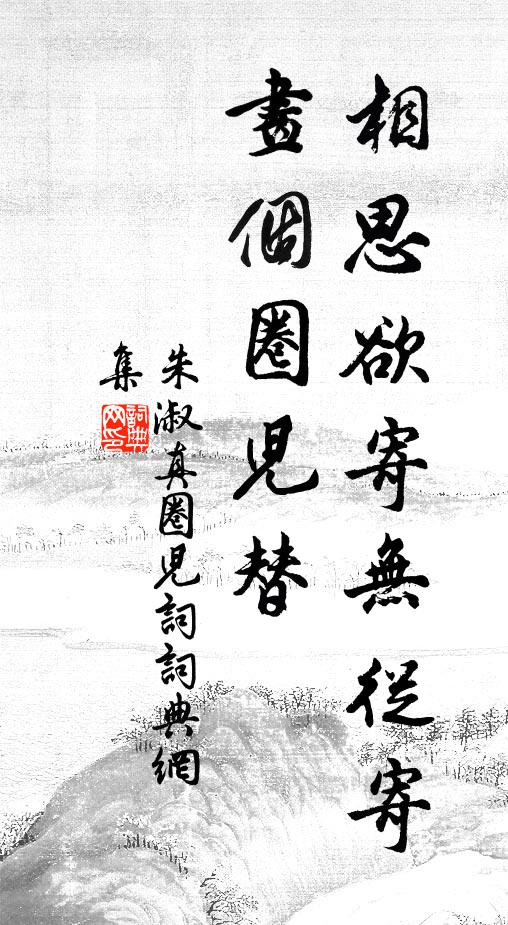 相思欲寄無從寄
畫個圈兒替
朱淑真圈兒詞詞典網
集
詞典網印